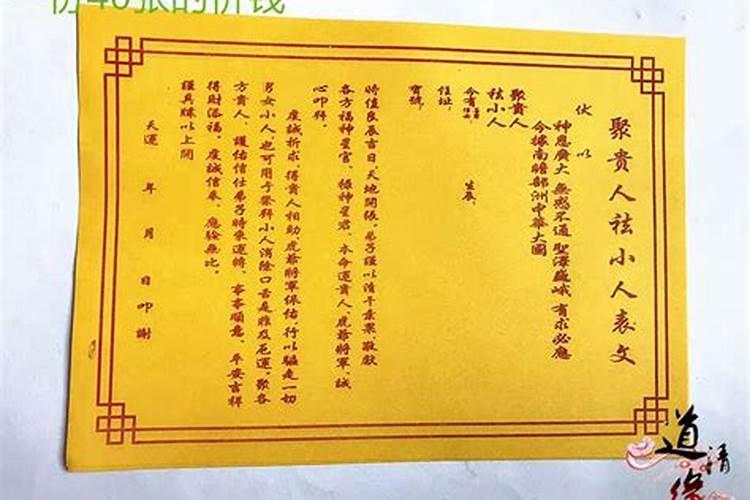 份40张的价钱
聚貴人祛小人表文
伏以
神恩廣大 無感不通 聖澤巍峨 有求必應
今據南瞻部洲中華大國
聚貴人
祛小人
今有
住址
生辰
寶號
時值良辰吉日,天地開張,弟子謹以清干素果敬獻
各方福神星官、祿神星君、本命運貴人、虎爺將軍,誠
心叩拜。
虔誠祈求,得貴人相助虎爺將軍保佑,行以驅走一切
男女小人,也可用于祭拜小人消除口舌是非及厄運,聚各
方貴人,護佑信仕弟子時來運轉、事事順意、平安吉祥
得財添福。虔誠信奉,應驗無比。
謹具牒以上聞
天運 年 月 日叩謝
道
清
缘